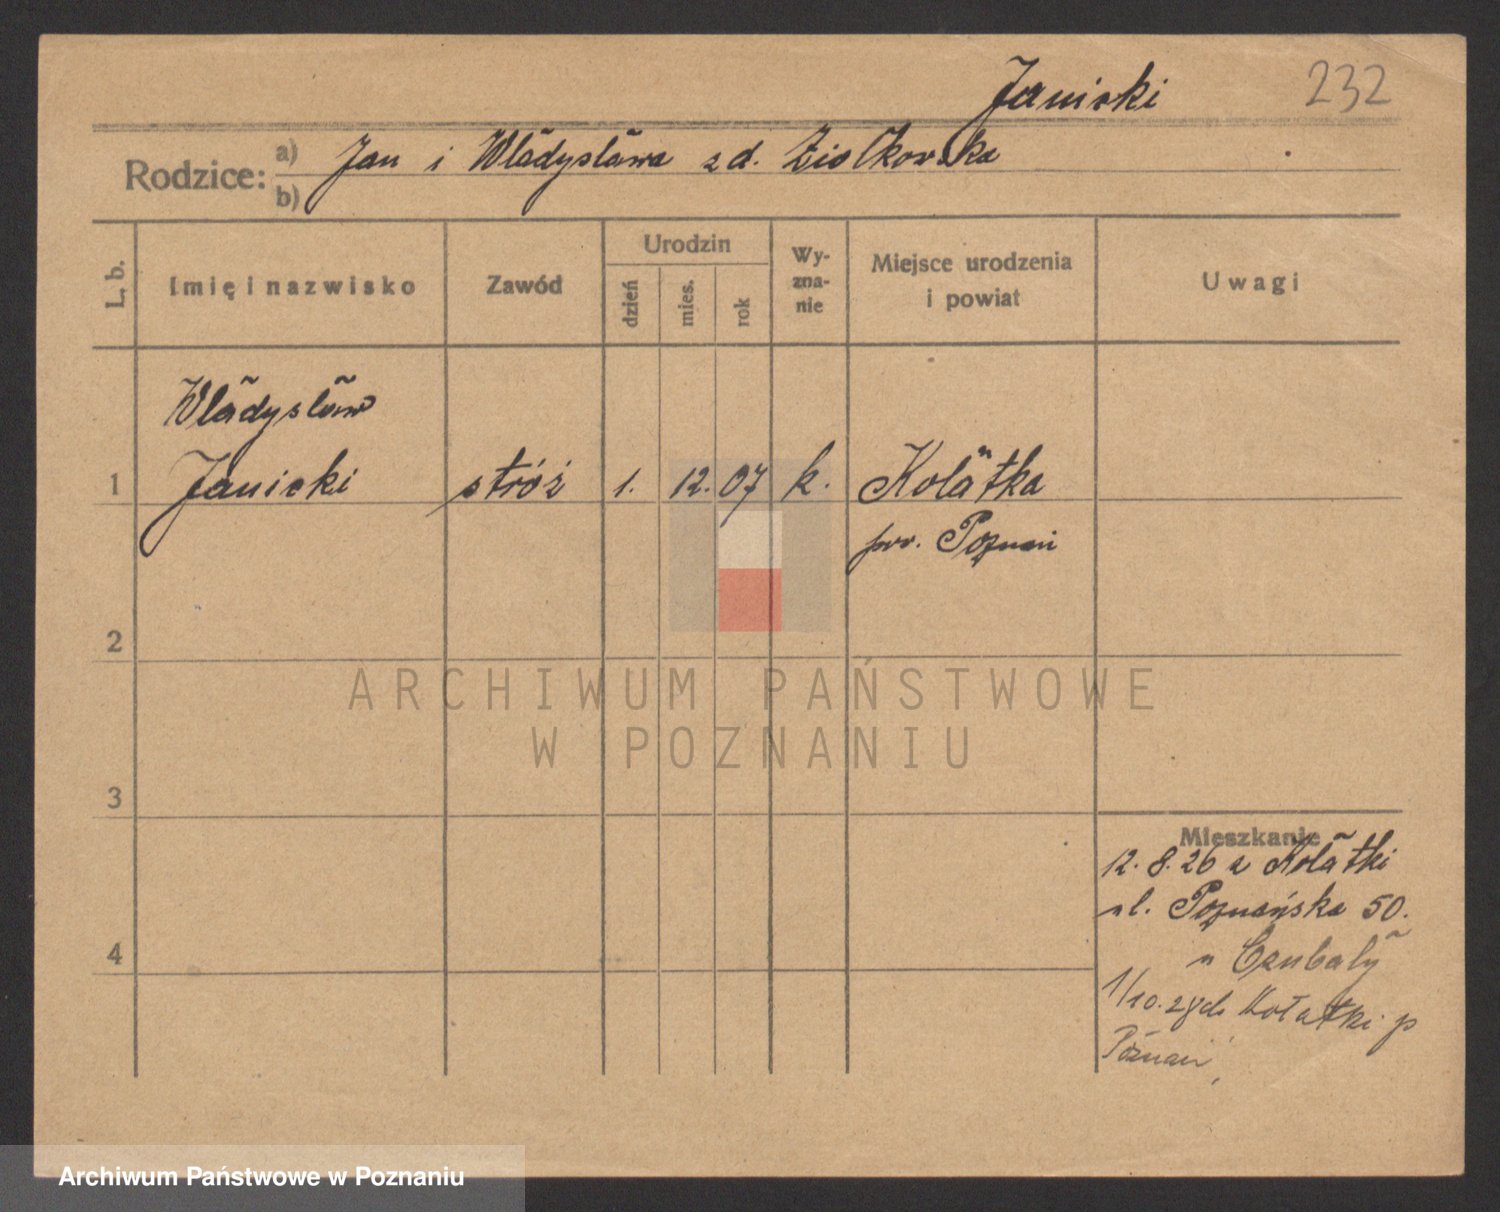 Janicki 232
Rodzice: a) Jan i Władysława zd. Ziołkowska
b)
L. b. Imię i nazwisko Zawód Urodzin dzień mies. rok Wy-zna-nie Miejsce urodzenia i powiat Uwagi
Władysław
1 Janicki stróż 1. 12. 07 k. Kołatka
pow. Poznań
2
ARCHIWUM PAŃSTWOWE
W POZNANIU
3
Mieszkanie
12. 8. 26 z Kołatki
ul. Poznańska 50.
u Czubały
4
1/10. 28 do Kołatki p
Poznań
Archiwum Państwowe w Poznaniu